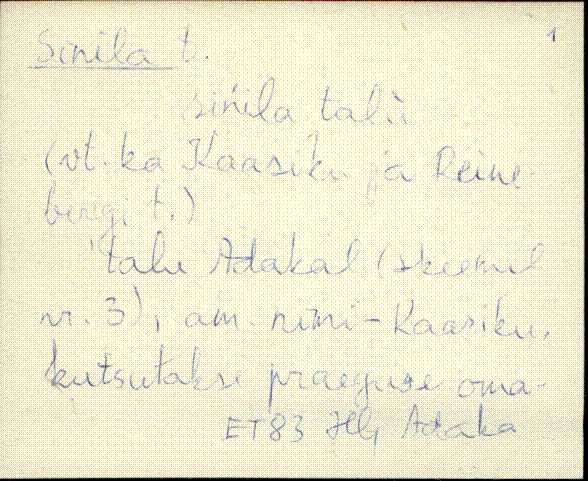 1
Sinila t.
sińila talù
(vt. ka Kaasiku ja Reine-
bergi t.)
talu Adakal (skeemil
nr. 3), am. nimi - Kaasiku,
kutsutakse praeguse oma-
ET83 Adaka